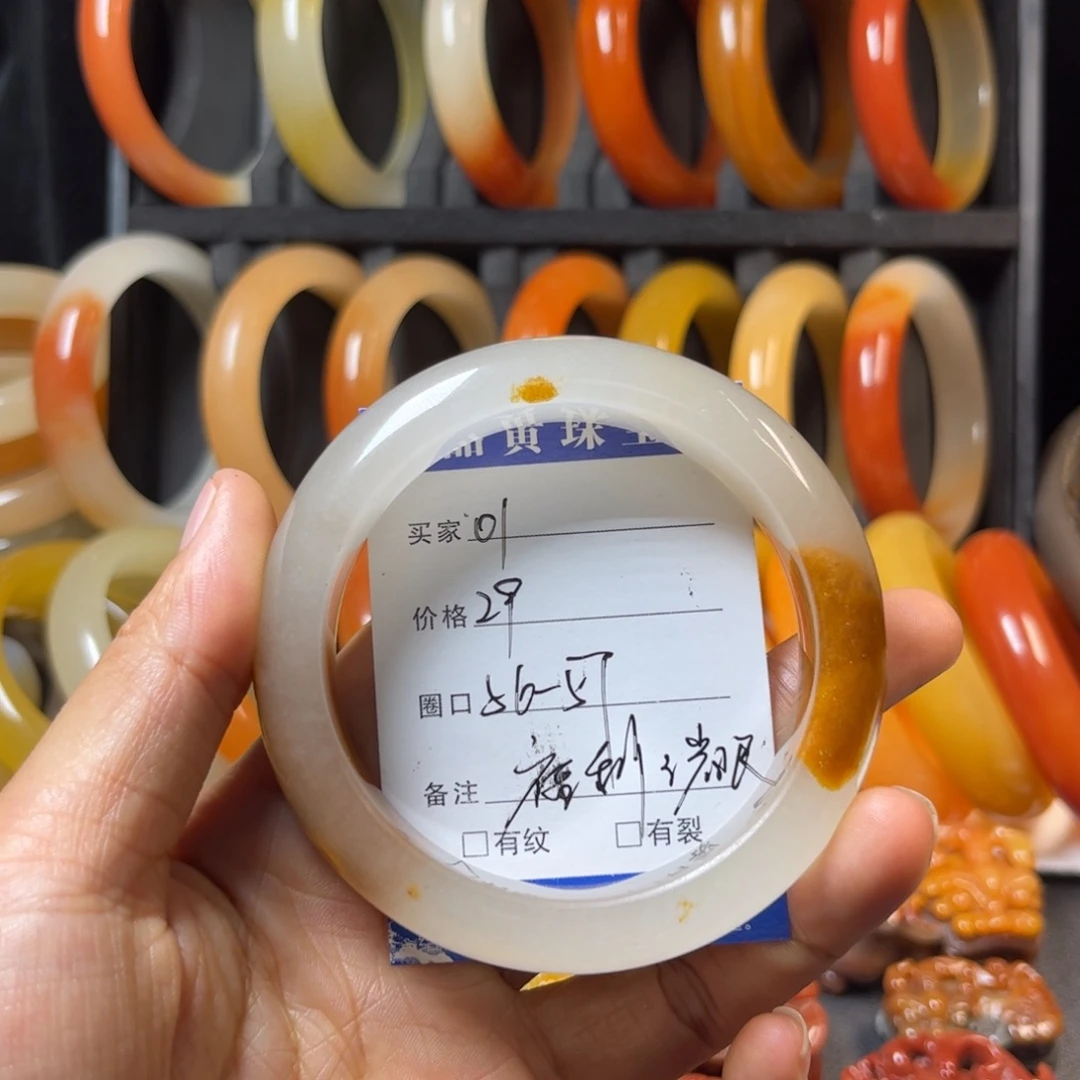 品黄珠宝
买家 01
价格 29
圈口 56-57
备注 福利
□有纹 □有裂